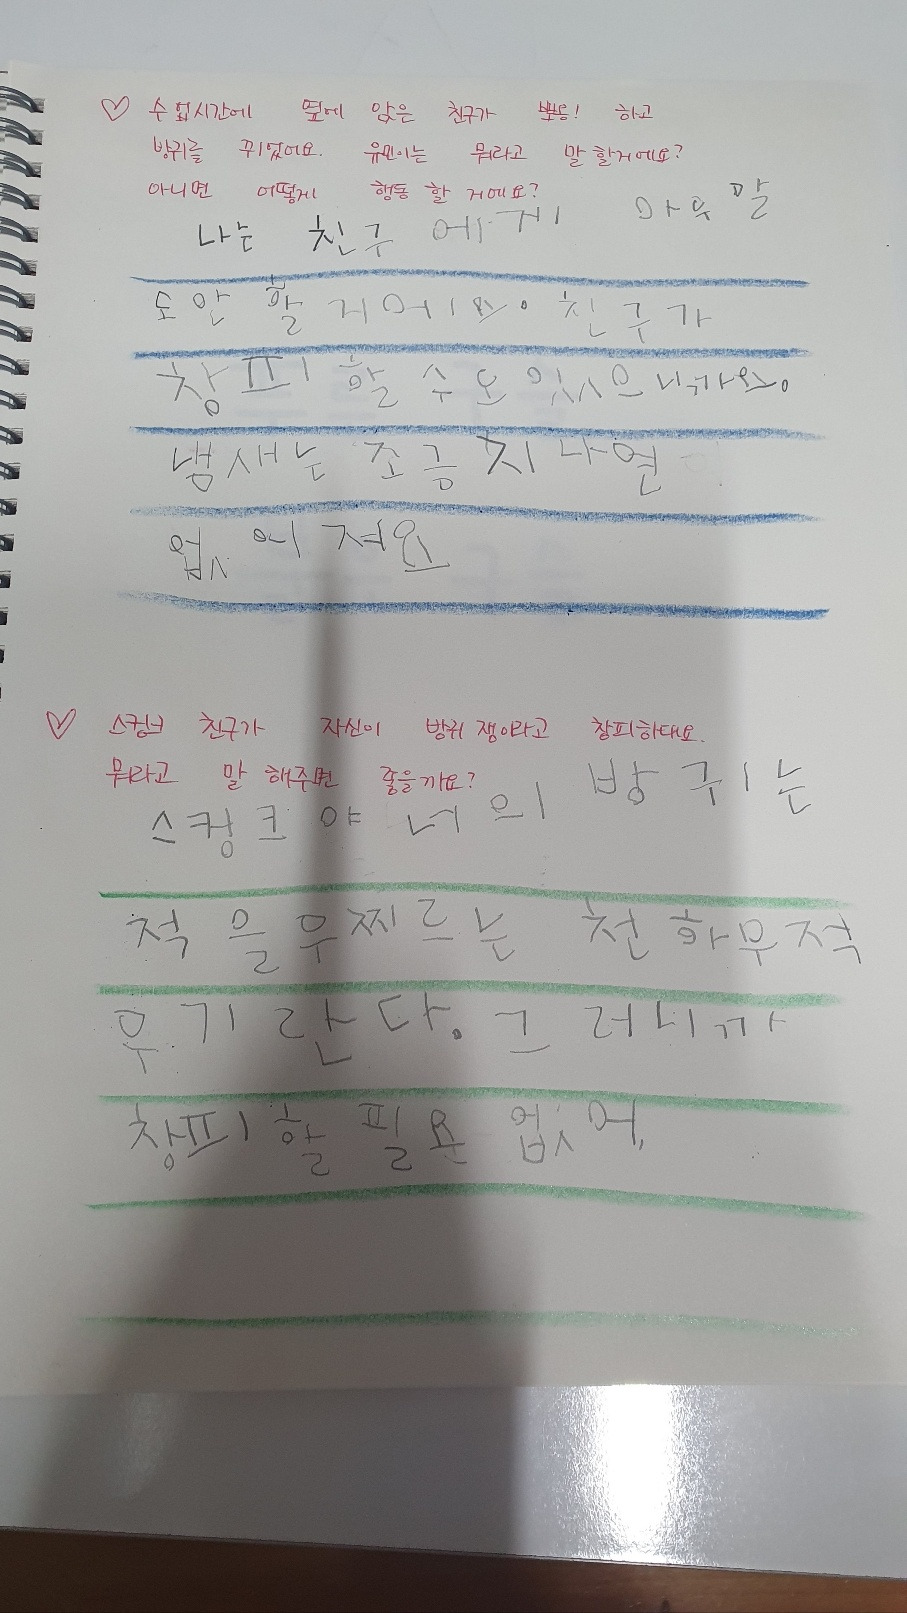 ♡ 수업시간에 옆에 앉은 친구가 뽀옹! 하고
방귀를 뀌었어요. 유민이는 뭐라고 말 할거에요?
아니면 어떻게 행동 할 거에요?
나는 친구에게 아무말
도 안 할 거에요. 친구가
창피할 수도 있스니까요.
냄새는 조금 지나면
없어져요
♡ 스컹크 친구가 자신이 방귀 쟁이라고 창피하대요.
뭐라고 말 해주면 좋을까요?
스컹크야 너의 방귀는
적을 우찌르는 천하무적
무기란다. 그러니까
창피할 필요 없어.